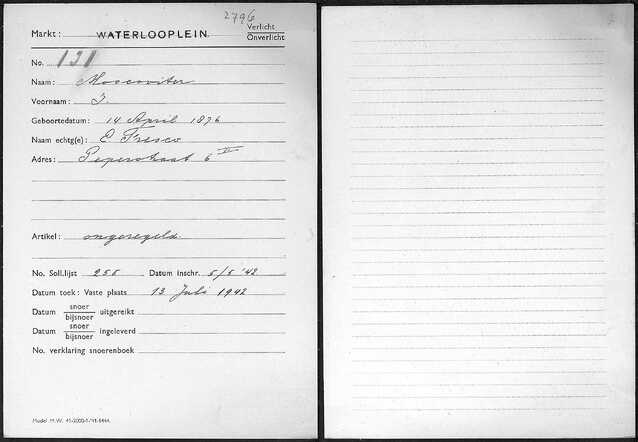 2796
Markt: WATERLOOPLEIN. Verlicht
Onverlicht
No. 131
Naam: Moscoviter
Voornaam: I.
Geboortedatum: 14 April 1876
Naam echtg(e): E Fresco
Adres: Peperstraat 6 II
Artikel: ongeregeld
No. Soll.lijst 255 Datum inschr. 5/5 '42
Datum toek: Vaste plaats 13 Juli 1942
Datum snoer/bijsnoer uitgereikt
Datum snoer/bijsnoer ingeleverd
No. verklaring snoerenboek
Model M.W.